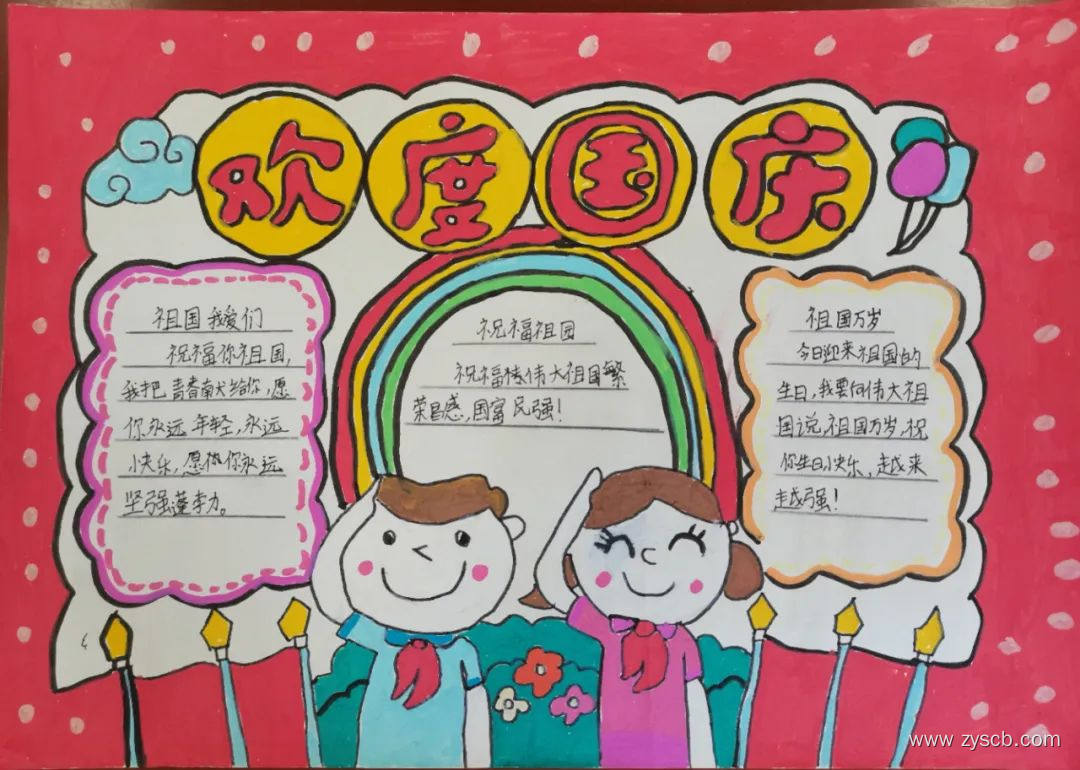 欢度国庆
祖国我爱们
祝福你祖国,
我把青春献给你,愿
你永远年轻,永远
快乐,愿你永远
坚强蓬勃。
祝福祖国
祝福伟大祖国繁
荣昌盛,国富民强!
祖国万岁
今日迎来祖国的
生日,我要向伟大祖
国说,祖国万岁,祝
你生日快乐,越来
越强!
www.zyscb.com